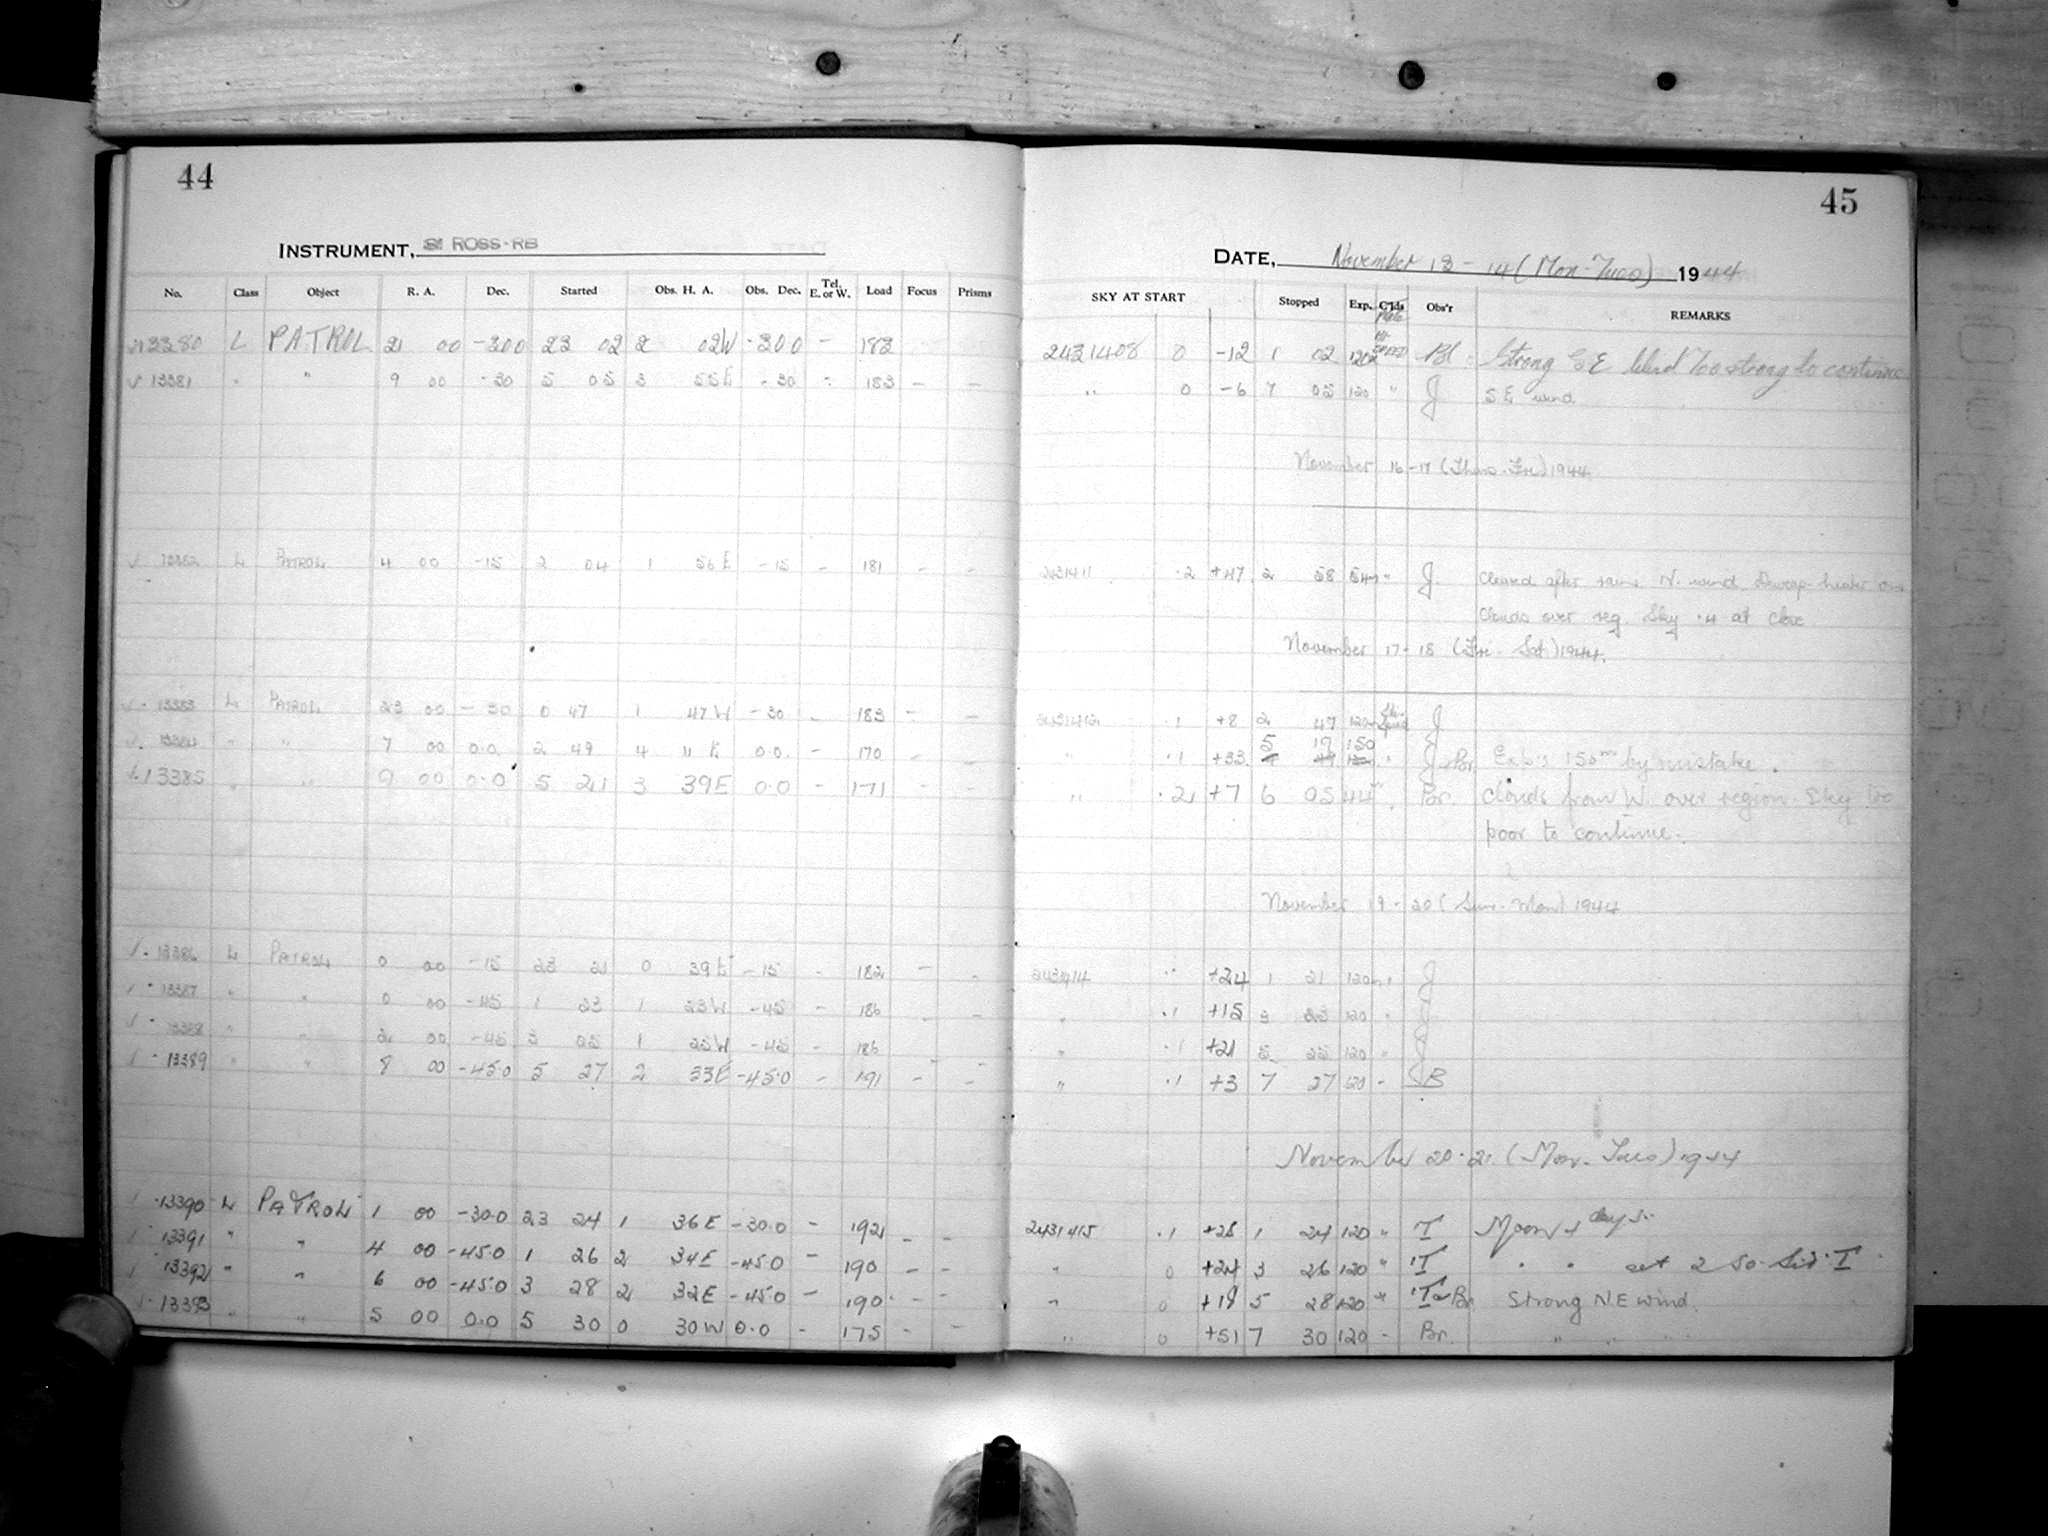 44
INSTRUMENT, ROSS-RB
No. Class Object R. A. Dec. Started Obs. H. A. Obs. Dec. Tel. E. or W. Load Focus Prisms
13380 L PATROL 21 00 -30 0 23 02 2 02W -30 0 - 183
√ 13381 " " 9 00 -30 5 05 3 55E -30 " 183 - -
√ 13382 L PATROL 4 00 -15 2 04 1 56E -15 - 181 - -
√ 13383 L PATROL 23 00 -30 0 47 1 47W -30 - 183 - -
√ 13384 " " 7 00 0.0 2 49 4 11 E 0.0 - 170 - -
√ 13385 " " 9 00 0.0 5 21 3 39E 0.0 - 171 - -
√ 13386 L PATROL 0 00 -15 23 21 0 39E -15 - 182 - -
√ 13387 " " 0 00 -45 1 23 1 23W -45 - 186 - -
√ 13388 " " 2 00 -45 3 25 1 25W -45 - 186 - -
√ 13389 " " 8 00 -45.0 5 27 2 33E -45.0 - 191 - -
√ 13390 L PATROL 1 00 -30.0 23 24 1 36E -30.0 - 192 - -
13391 " " 4 00 -45.0 1 26 2 34E -45.0 - 190 - -
13392 " " 6 00 -45.0 3 28 2 32E -45.0 - 190 - -
√ 13393 " " 5 00 0.0 5 30 0 30W 0.0 - 175 - -
45
DATE, November 13-14 (Mon-Tues) 1944
SKY AT START Stopped Exp. Obs'r REMARKS
2431408 0 -12 1 02 120 Bl Strong SE Wind Too strong to continue
" 0 -6 7 05 120 " J SE wind
November 16-17 (Thurs-Fri) 1944
2431411 .2 +47 2 58 54m " J. Cleared after rain. N. wind. Dewcap heater on
Clouds over reg. Sky .4 at close
November 17-18 (Fri-Sat) 1944.
2431412 .1 +8 2 47 120m J
5 19 150
" .1 +33 " J+Br Exp. is 150m by mistake.
" .2 +7 6 05 44 " Br. Clouds from W. over region. Sky too
poor to continue.
November 19-20 (Sun-Mon) 1944
2431414 " +24 1 21 120m " J
" .1 +15 3 23 120 " J
" .1 +21 5 25 120 " J
" .1 +3 7 27 120 - JB
November 20-21 (Mon-Tues) 1944
2431415 .1 +28 1 24 120 " T Moon 4 days.
" 0 +24 3 26 120 " T " " set 2 50 Sid. T
" 0 +18 5 28 120 " T+Br Strong N.E wind.
" 0 +51 7 30 120 - Br. " " "